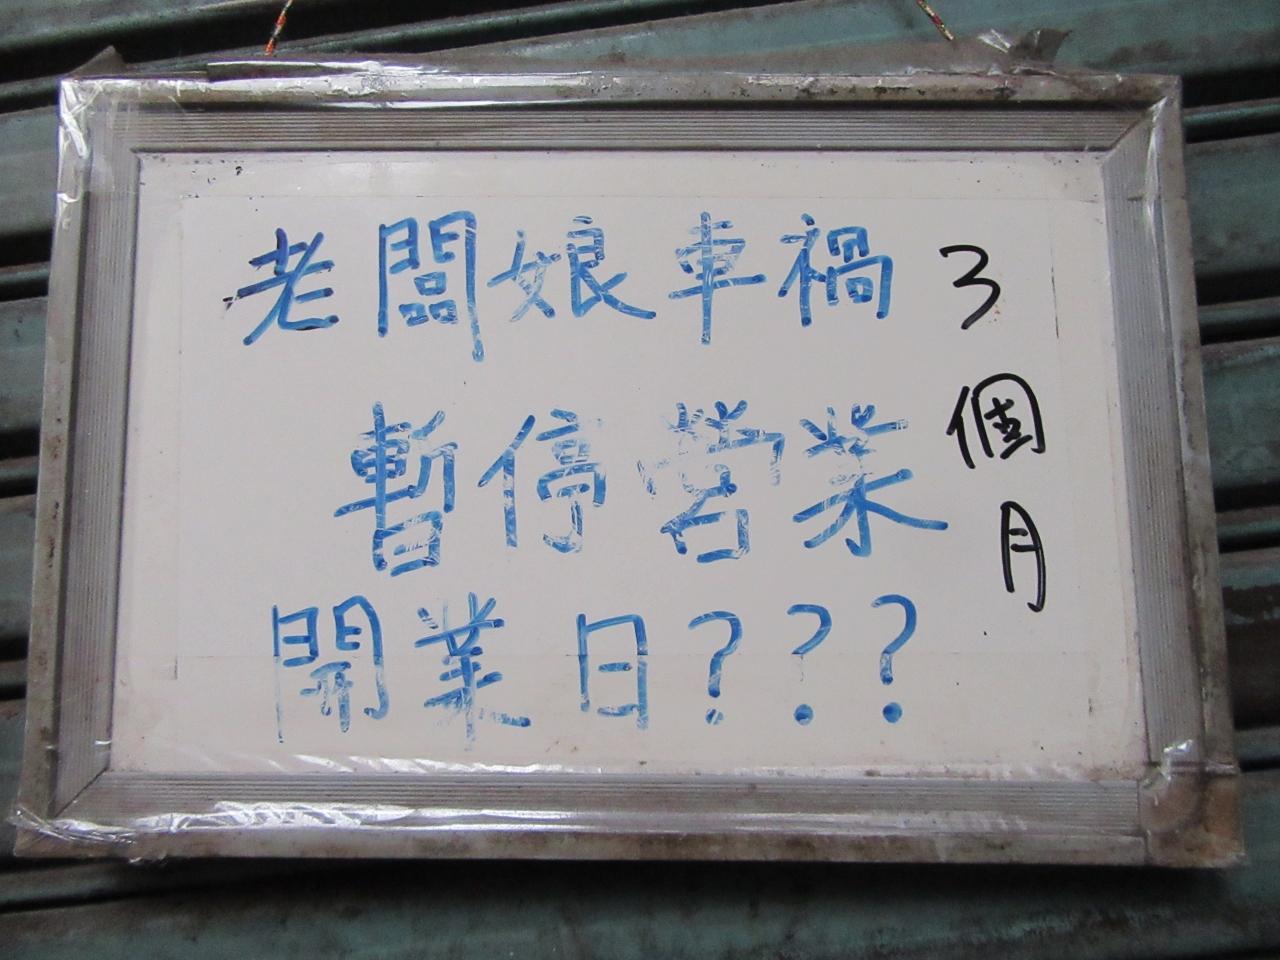 老闆娘車禍
暫停營業
開業日???
3個月